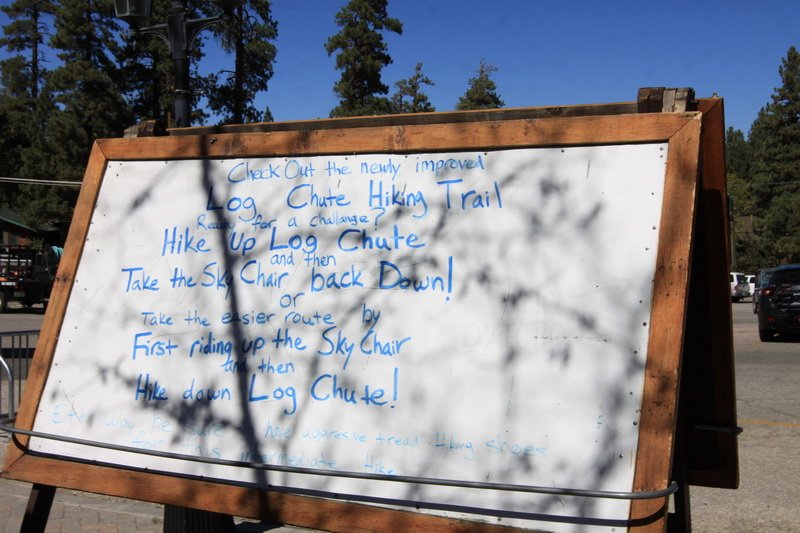 Check Out the newly improved
Log Chute Hiking Trail
Ready for a challange?
Hike Up Log Chute
and then
Take the Sky Chair back Down!
or
Take the easier route by
First riding up the Sky Chair
and then
Hike down Log Chute!
Way be sure have aggresive tread Hiking shoes
for this intermediate Hike